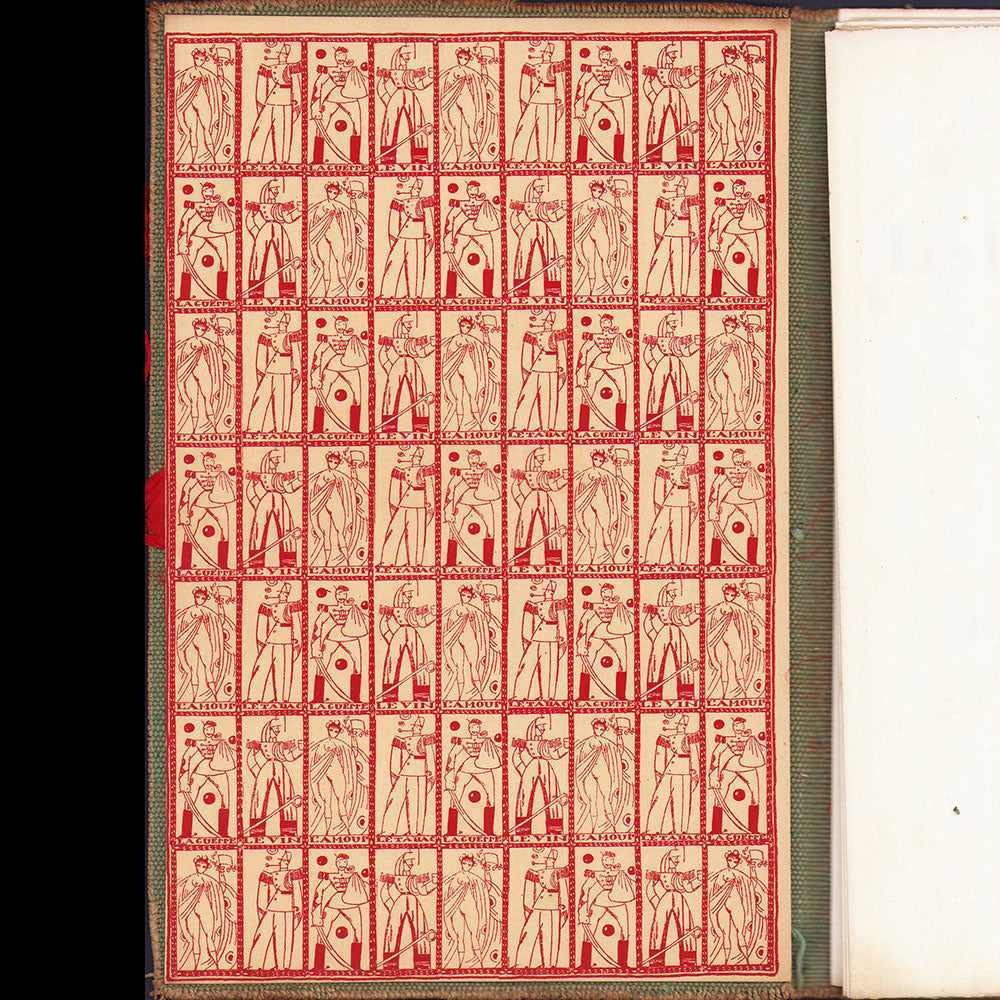 L'AMOUR LE TABAC LA GUERRE LE VIN L'AMOUR LE TABAC LA GUERRE LE VIN L'AMOUR
LA GUERRE LE VIN L'AMOUR LE TABAC LA GUERRE LE VIN L'AMOUR LE TABAC LA GUERRE
L'AMOUR LE TABAC LA GUERRE LE VIN L'AMOUR LE TABAC LA GUERRE LE VIN L'AMOUR
LA GUERRE LE VIN L'AMOUR LE TABAC LA GUERRE LE VIN L'AMOUR LE TABAC LA GUERRE
L'AMOUR LE TABAC LA GUERRE LE VIN L'AMOUR LE TABAC LA GUERRE LE VIN L'AMOUR
LA GUERRE LE VIN L'AMOUR LE TABAC LA GUERRE LE VIN L'AMOUR LE TABAC LA GUERRE